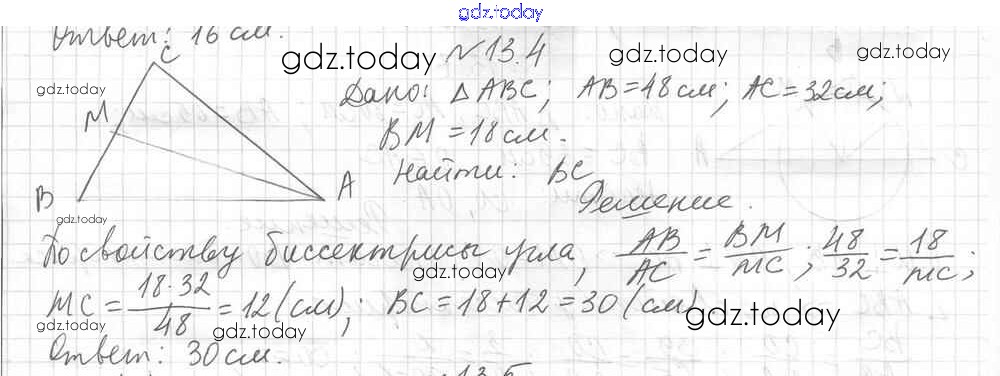 gdz.today
Ответ: 16 см.
gdz.today
№ 13.4
gdz.today
Дано: △ABC; AB=48см; AC=32см;
BM=18см.
Найти: BC
Решение.
C
M
B
A
gdz.today
По свойству биссектрисы угла, AB/AC = BM/MC; 48/32 = 18/MC;
gdz.today
MC = 18·32/48 = 12 (см); BC = 18+12 = 30 (см)
gdz.today
gdz.today
gdz.today
Ответ: 30 см.
13.5